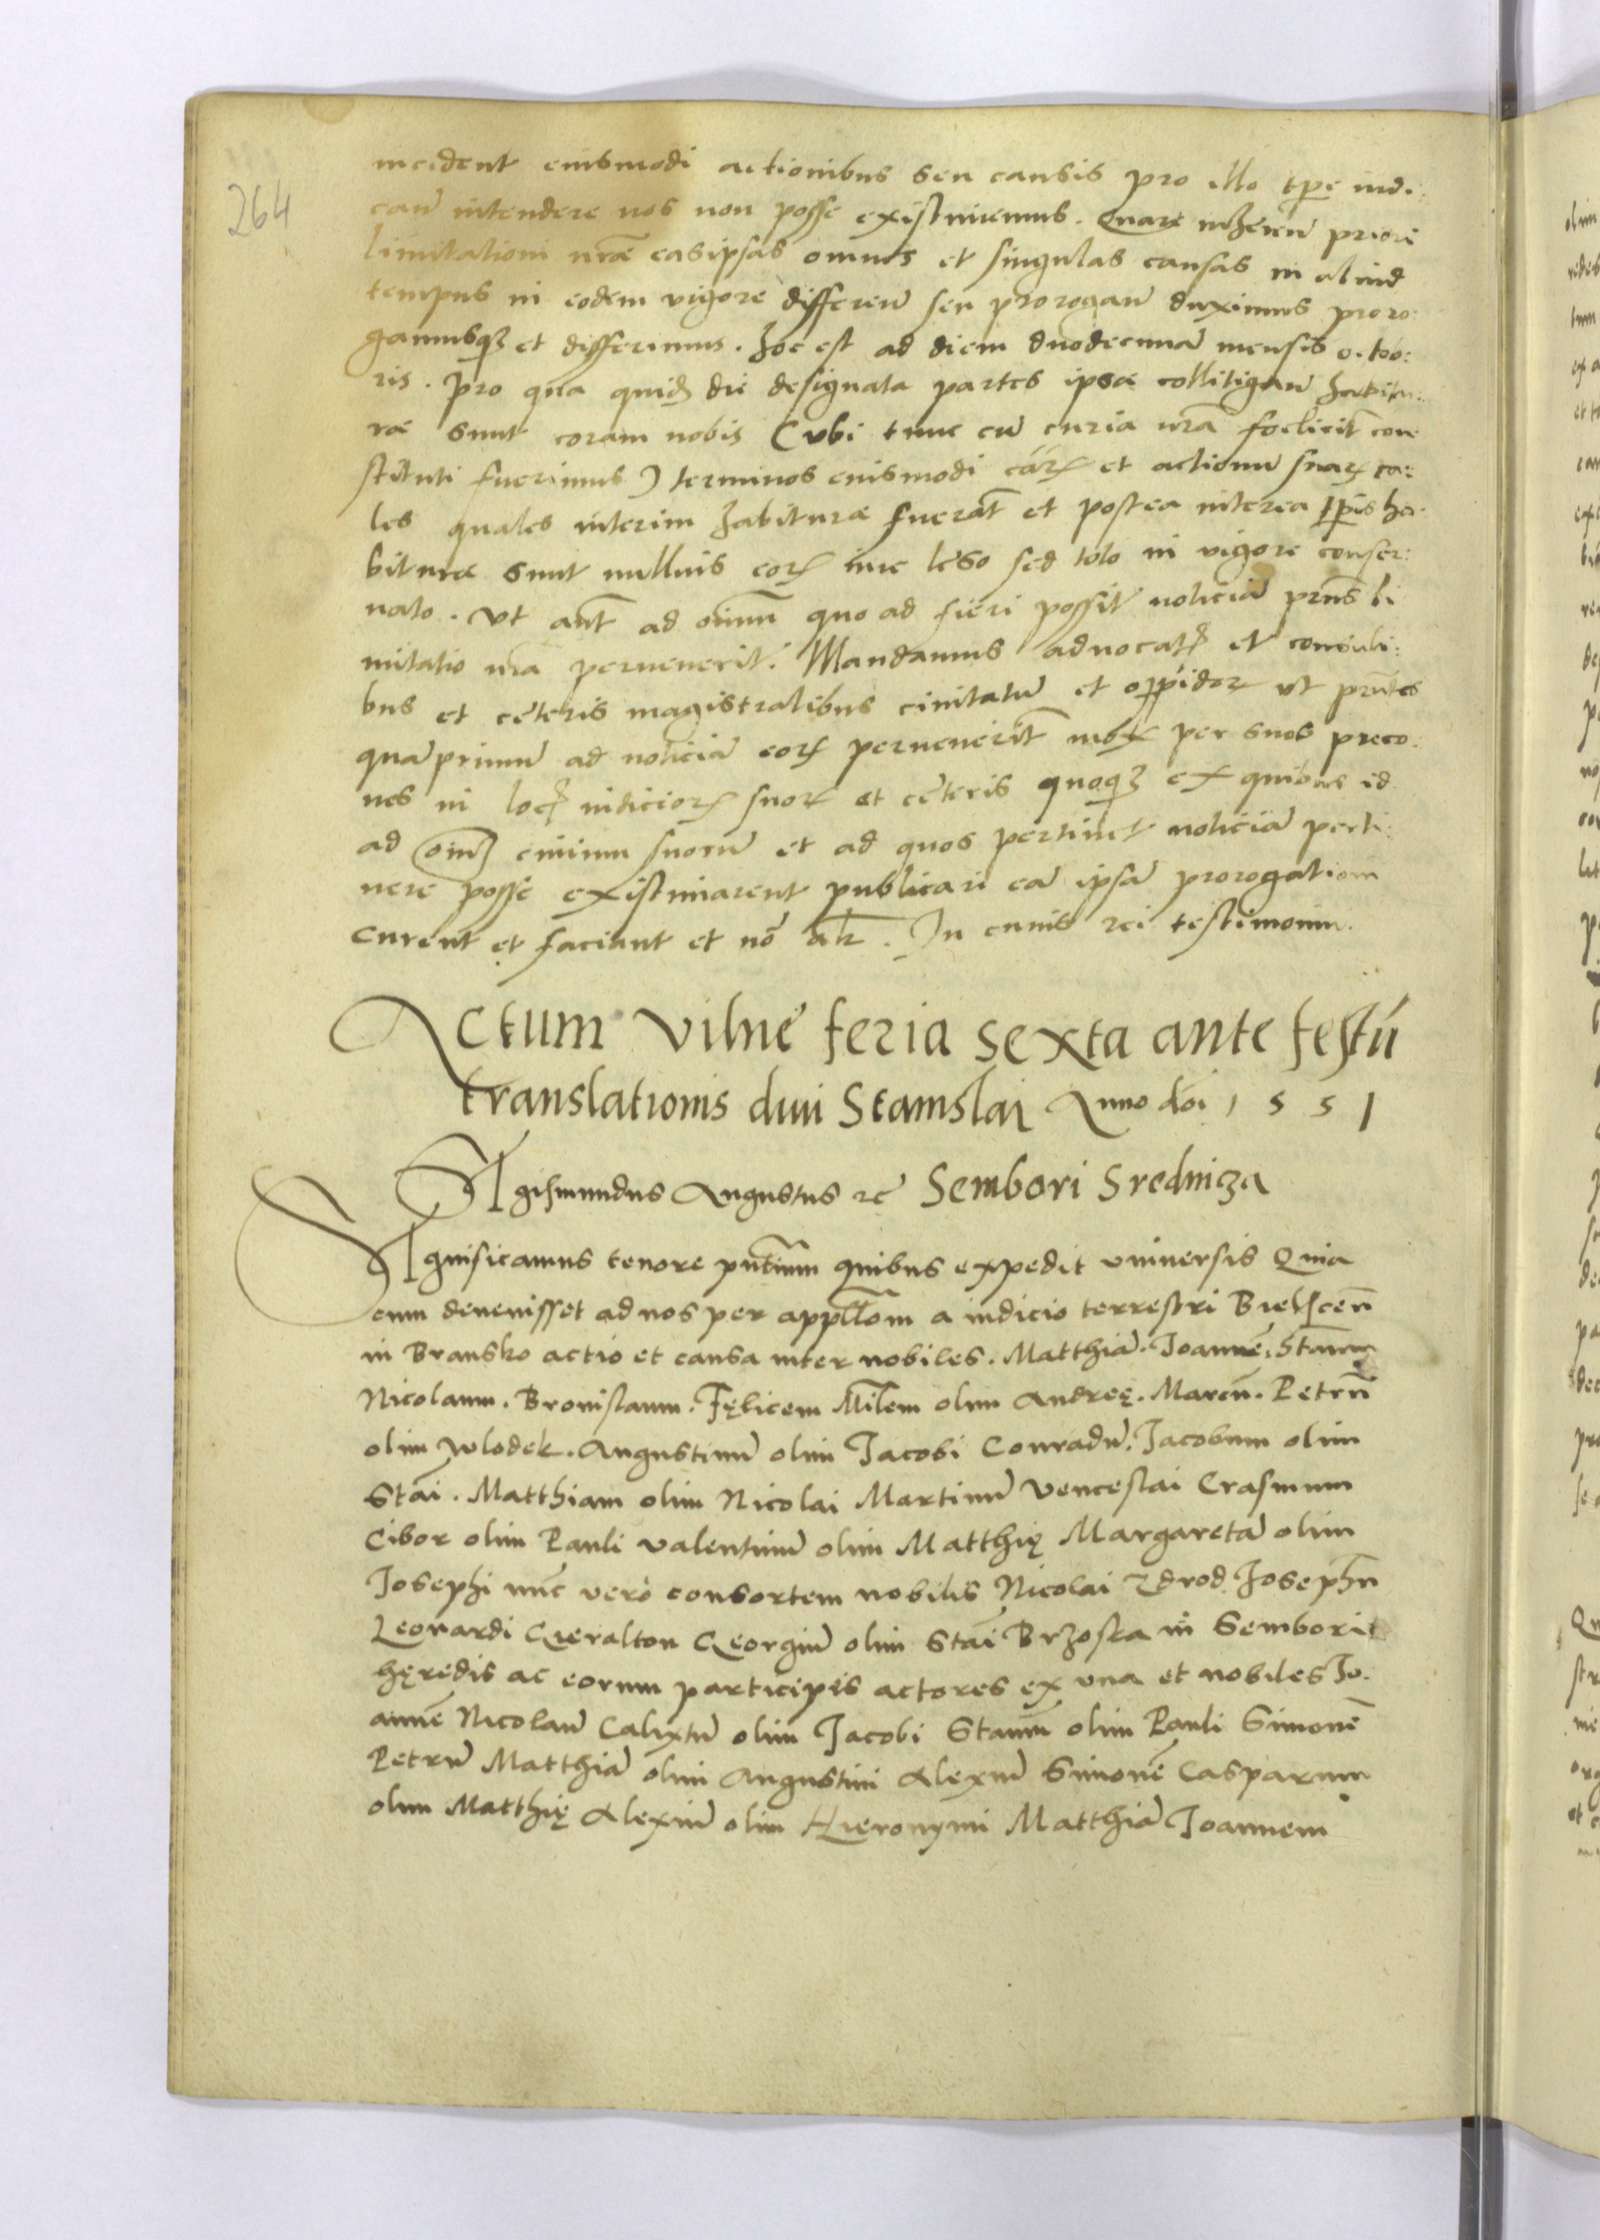 264
incident eiusmodi actionibus seu causis pro illo tpe iudi:
cañ intendere nos non posse existimemus. Quare inheren̄ priori
limitationi nrãe eas ipsas omnes et singulas causas in aliud
tempus in eodem vigore differen̄ seu prorogan̄ duximus proro:
gamusqȝ et differimus. Hoc est ad diem duodecimã mensis octob:
ris. Pro qua quidẽ die designata partes ipsae collitigan̄ habitu:
rae sunt coram nobis (ubi tunc cũ curia nrã foelicit̃ con
stituti fuerimus) terminos eiusmodi cãrꝝ et actionũ suarꝝ ta:
les quales interim habiturae fuerãt et postea interea ha:
biturae sunt nullius eorꝝ iure leso sed toto in vigore conser:
uato. Ut aũt ad oĩum quo ad fieri possit noticiã prñs li
mitatio nrã peruenerit. Mandamus aduocatꝭ et consuli:
bus et cẽteris magistratibus ciuitatũ et oppidorꝝ ut prñtes
quãprimum ad noticiã eorꝝ peruenerit̃ per suos preco:
nes in locꝭ iudiciorꝝ suorꝝ et cẽteris quoqȝ ex quibus id
ad oĩm ciuium suorũ et ad quos pertinet noticiã perti:
nere posse existimarent publicari eã ipsã prorogationem
curent et faciant et nõ alr̃. In cuius rei testimoniũ.
Actum Vilnẽ feria sexta ante festũ
translationis diui Stanislai Anno dñi 1551
Sigismundus Augustus rc̃ Sembori Sredniza
Significamus tenore pñtium quibus expedit vniuersis Quia
cum deuenisset ad nos per appllõm a iudicio terrestri Bielscen̄
in Bransko actio et causa inter nobiles. Matthiã. Joannẽ. Stanm̃
Nicolaum. Bronislaum. Fęlicem Mĩlem olim Andreę. Marcũ. Petrũ
olim Wlodek. Augustinũ olim Jacobi Conradũ. Jacobum olim
Stãi. Matthiam olim Nicolai Martinũ Venceslai Erasmum
Cibor olim Pauli Valentinũ olim Matthię Margaretã olim
Josephi nũc vero consortem nobilis Nicolai Zdrod Josephũ
Leonardi Gieralton Georgiũ olim Stãi Brzoska in Sembori
hęredis ac eorum participis actores ex una et nobiles Jo:
annẽ Nicolaũ Calixtũ olim Jacobi Stanm̃ olim Pauli Simonẽ
Petrũ Matthiã olim Augustini Alexiũ Simonẽ Casparum
olim Matthię Alexiũ olim Hieronymi Matthiã Joannem